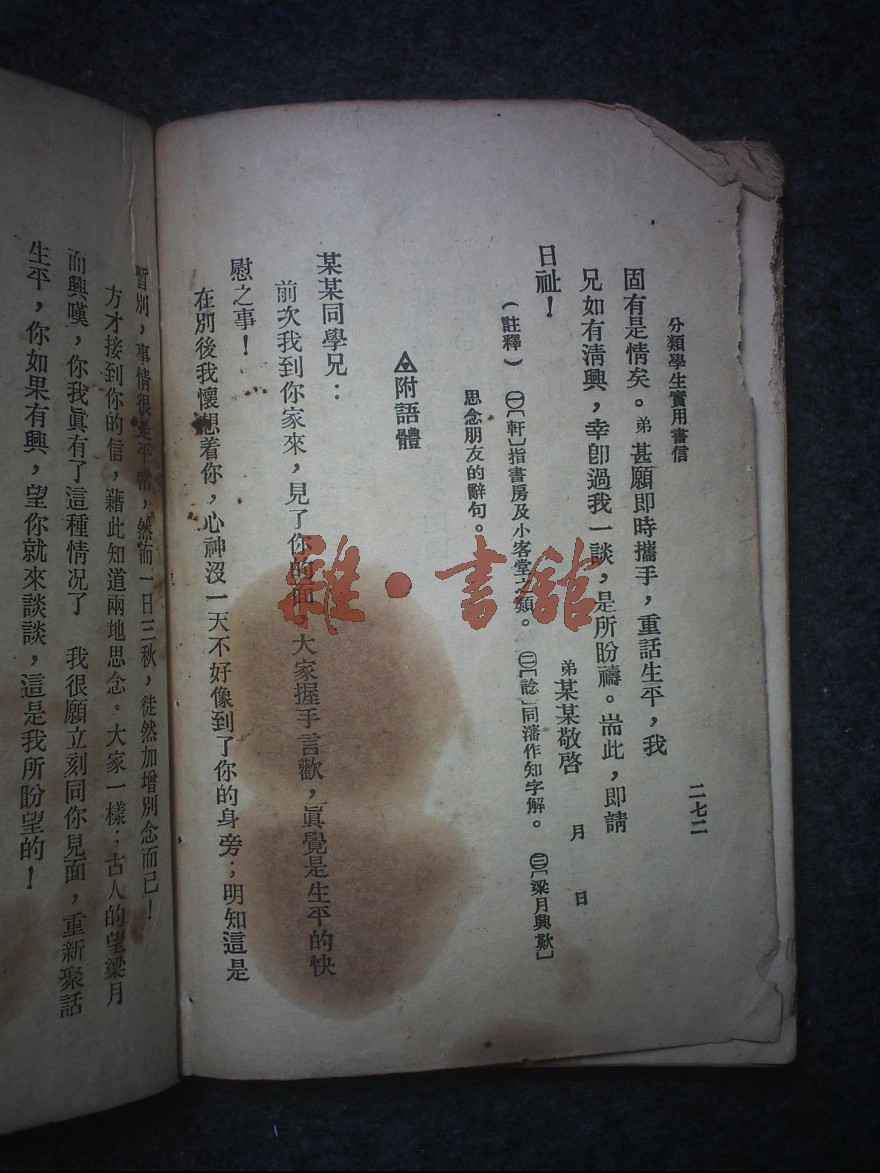 分類學生實用書信
二七二
固有是情矣。弟甚願即時攜手，重話生平，我
兄如有清興，幸卽過我一談，是所盼禱。耑此，即請
日祉！
弟某某敬啓　月　日
（註釋）㊀〔軒〕指書房及小客堂之類。㊁〔諗〕同瀋作知字解。㊂〔梁月興歎〕
思念朋友的辭句。
附語體
某某同學兄：
前次我到你家來，見了你的面，大家握手言歡，眞覺是生平的快
慰之事！
在別後我懷想着你，心神沒一天不好像到了你的身旁；明知這是
暫別，事情很是平常，然而一日三秋，徒然加增別念而已！
方才接到你的信，藉此知道兩地思念。大家一樣；古人的望梁月
而興嘆，你我眞有了這種情況了　我很願立刻同你見面，重新聚話
生平，你如果有興，望你就來談談，這是我所盼望的！
雜·書館